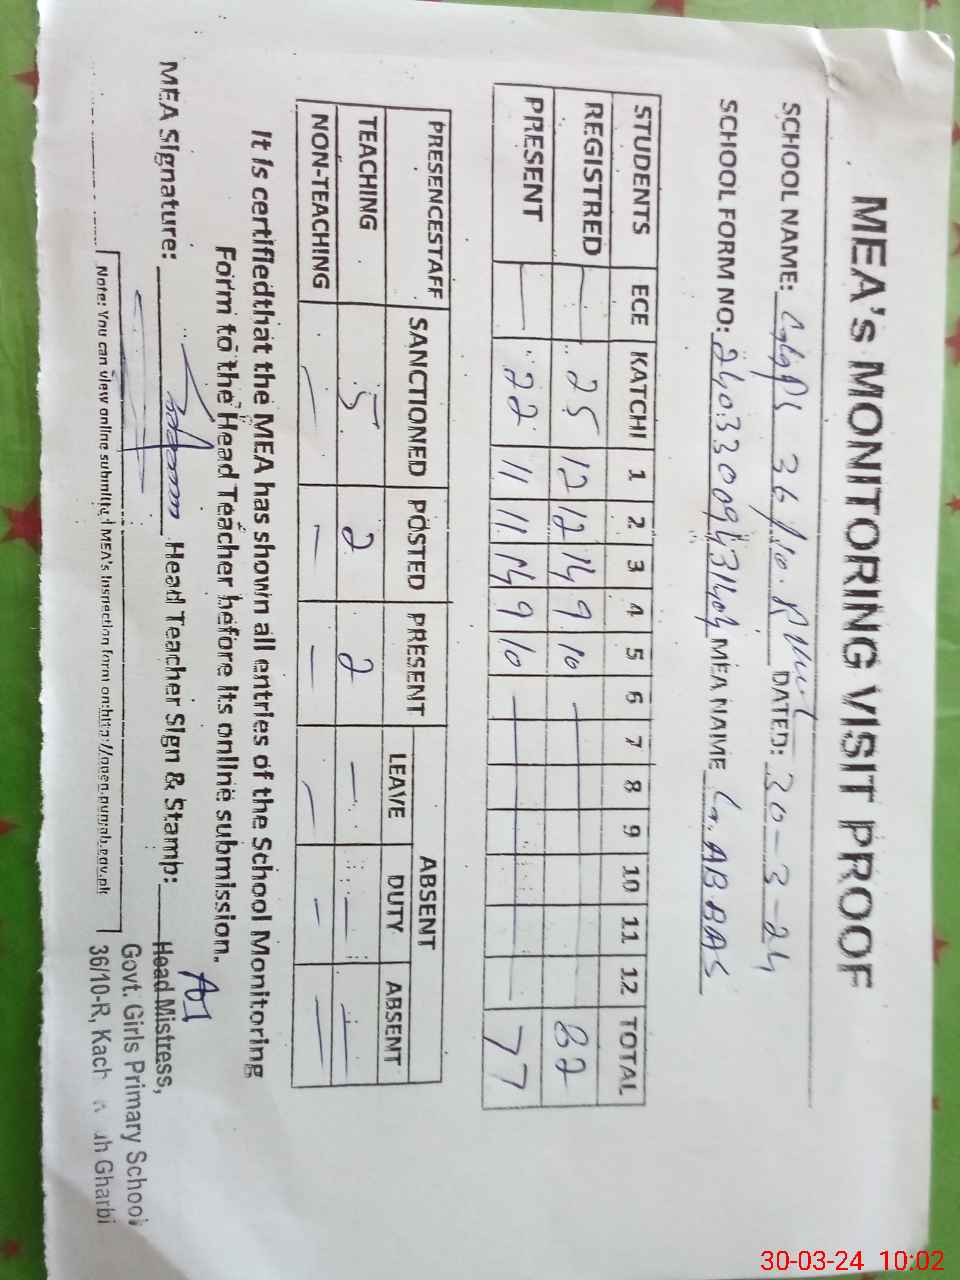 MEA's MONITORING VISIT PROOF
SCHOOL NAME: GGPS 36/10.R DATED: 30-3-24
SCHOOL FORM NO: MEA NAME G.ABBAS
STUDENTS ECE KATCHI 1 2 3 4 5 6 7 8 9 10 11 12 TOTAL
REGISTRED — 25 12 12 14 9 10 — 82
PRESENT — 22 11 11 14 9 10 — 77
PRESENCESTAFF SANCTIONED POSTED PRESENT ABSENT
LEAVE DUTY ABSENT
TEACHING 5 2 2 — — —
NON-TEACHING — — — — — —
It is certifiedthat the MEA has shown all entries of the School Monitoring
Form to the Head Teacher before its online submission.
MEA Signature: Head Teacher Sign & Stamp:
Head Mistress,
Govt. Girls Primary School
36/10-R, Gharbi
Note: You can view online submitted MEA's Inspection form on:
30-03-24 10:02